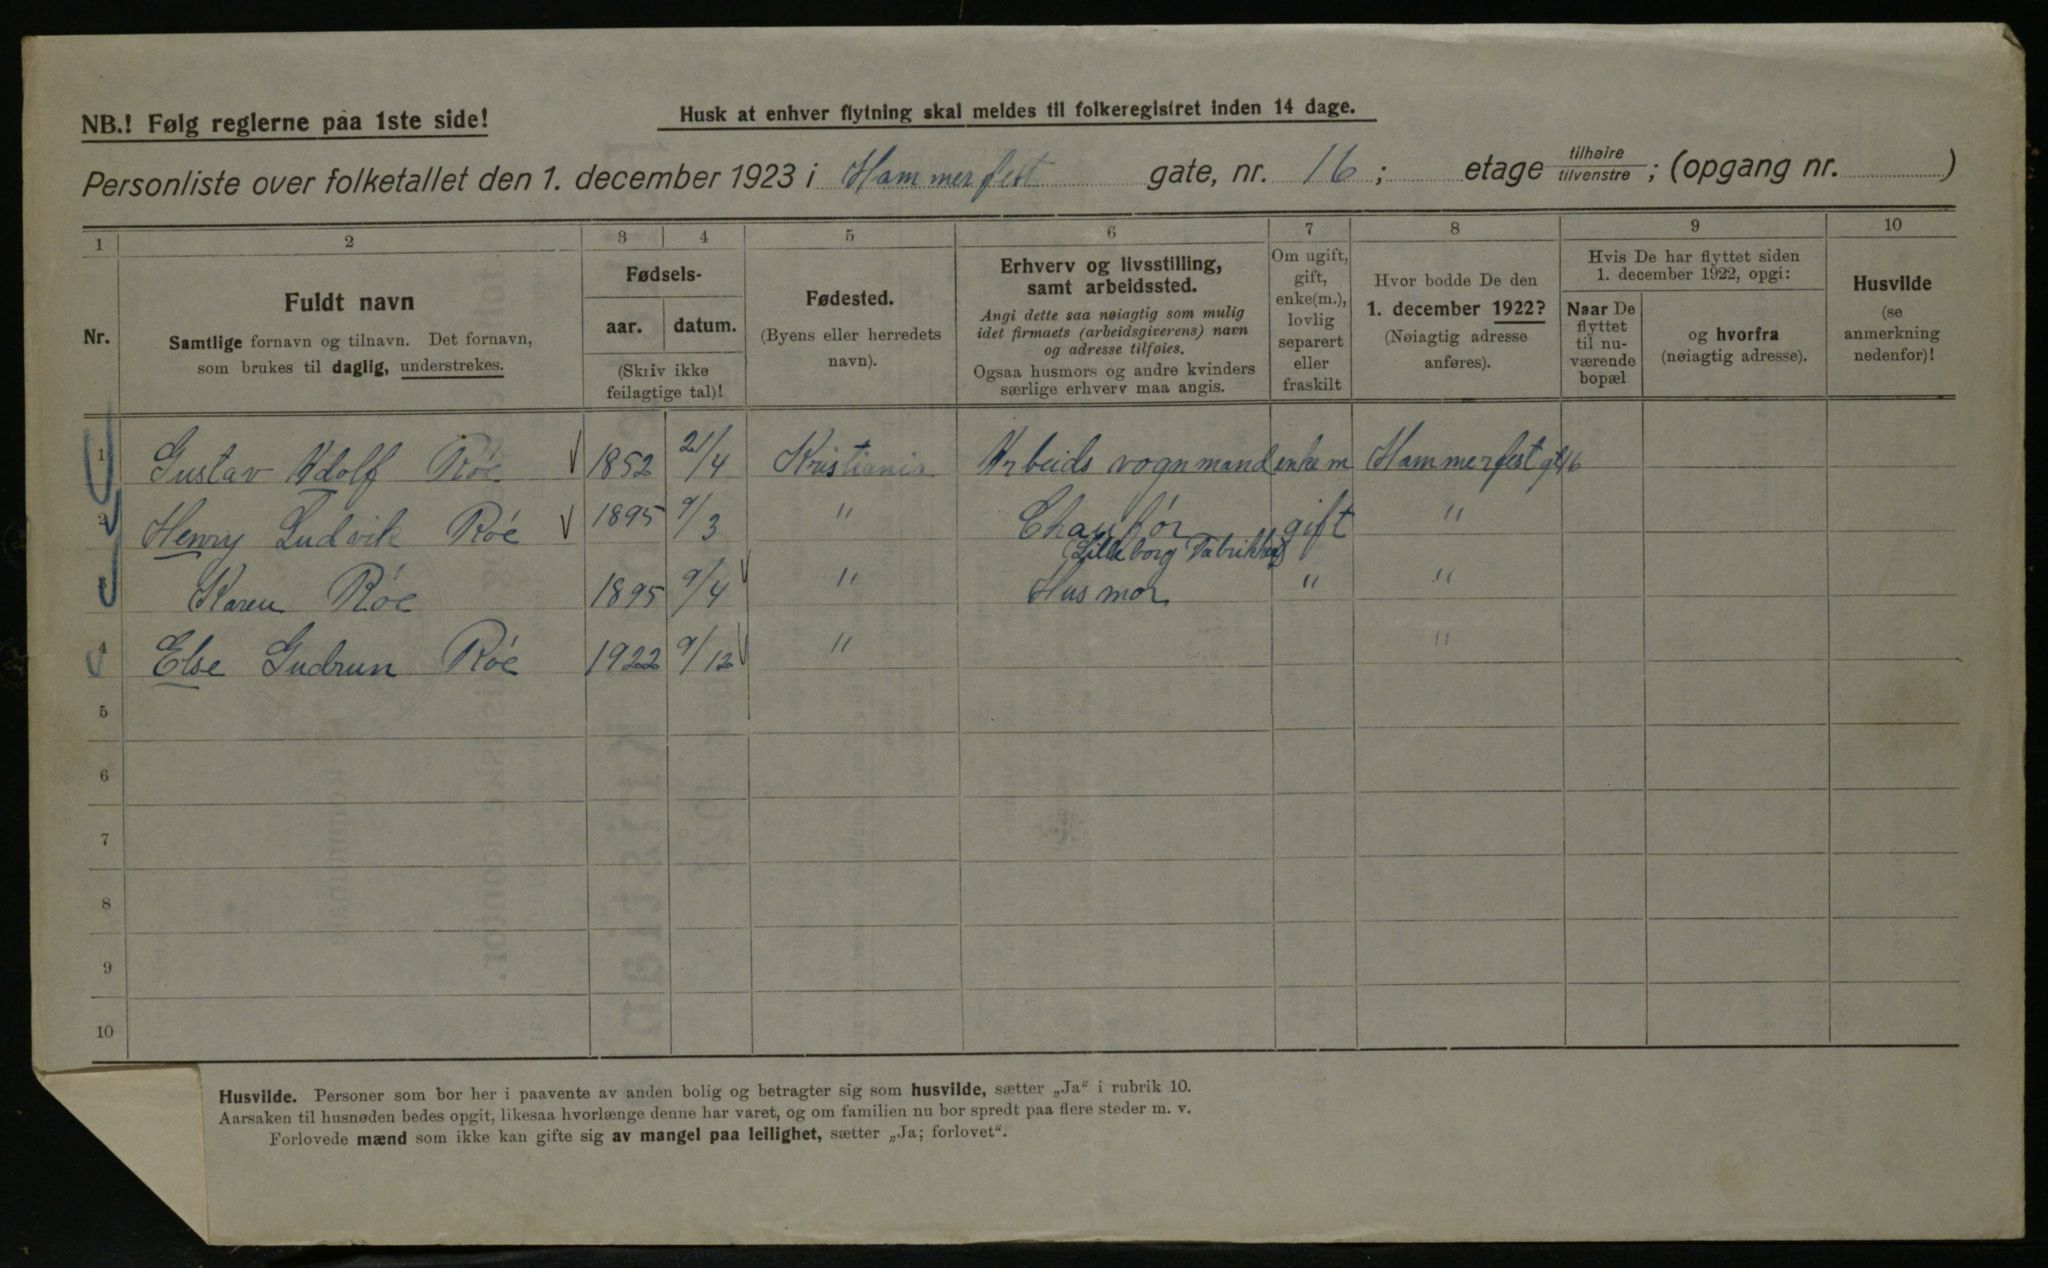 NB.! Følg reglerne paa 1ste side!
Husk at enhver flytning skal meldes til folkeregistret inden 14 dage.
Personliste over folketallet den 1. december 1923 i Hammerfest gate, nr. 16 ; etage tilhøire / tilvenstre ; (opgang nr. )
1 2 3 4 5 6 7 8 9 10
Nr.
Fuldt navn
Samtlige fornavn og tilnavn. Det fornavn,
som brukes til daglig, understrekes.
Fødsels-
aar. datum.
(Skriv ikke
feilagtige tal)!
Fødested.
(Byens eller herredets
navn).
Erhverv og livsstilling,
samt arbeidssted.
Angi dette saa nøiagtig som mulig
idet firmaets (arbeidsgiverens) navn
og adresse tilføies.
Ogsaa husmors og andre kvinders
særlige erhverv maa angis.
Om ugift,
gift,
enke(m.),
lovlig
separert
eller
fraskilt
Hvor bodde De den
1. december 1922?
(Nøiagtig adresse
anføres).
Hvis De har flyttet siden
1. december 1922, opgi:
Naar De
flyttet
til nu-
værende
bopæl
og hvorfra
(nøiagtig adresse).
Husvilde
(se
anmerkning
nedenfor)!
1 Gustav Adolf Róe 1852 21/4 Kristiania Arbeids vognmand enkem Hammerfest gt 16
2 Henry Ludvik Róe 1895 9/3 " Chaufför gift "
(Lilleborg Fabrikker)
Karen Róe 1895 9/4 " Husmor " "
4 Else Gudrun Róe 1922 9/12 " "
5
6
7
8
9
10
Husvilde. Personer som bor her i paavente av anden bolig og betragter sig som husvilde, sætter „Ja“ i rubrik 10.
Aarsaken til husnøden bedes opgit, likesaa hvorlænge denne har varet, og om familien nu bor spredt paa flere steder m. v.
Forlovede mænd som ikke kan gifte sig av mangel paa leilighet, sætter „Ja; forlovet“.